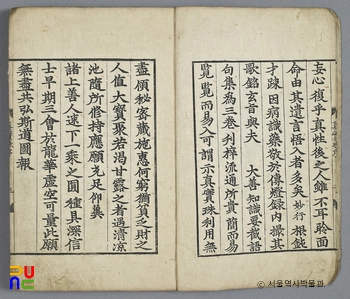 妄心復乎真性後之人雖不耳聆面
命由其遺言悟入者多矣妙行根鈍
才踈因病識藥敬於傳燈錄內撮其
歌銘玄旨與夫 大善知識要截語
句集為三卷列梓流通所貴簡而易
覽覽而易入可謂示真實珠利用無
盡頋秘密蔵施惠何窮猶貧乏財之
人值大寶聚若渴甘露之者遇清凉
池隨所修持應願充足仰冀
諸上善人遠下一乘之圓種具深信
士早期三會於龍華虛空可量此願
無盡共弘斯道圖報
서울역사박물관